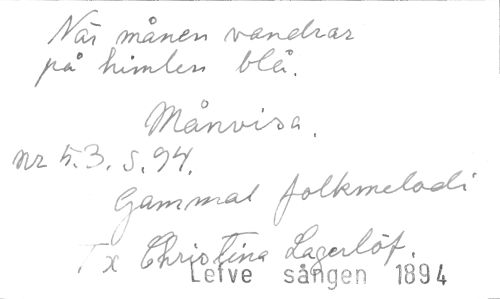 När månen vandrar
på himlen blå.
Månvisa.
nr 53. s. 94.
Gammal folkmelodi
Tx Christina Lagerlöf.
Lefve sången 1894